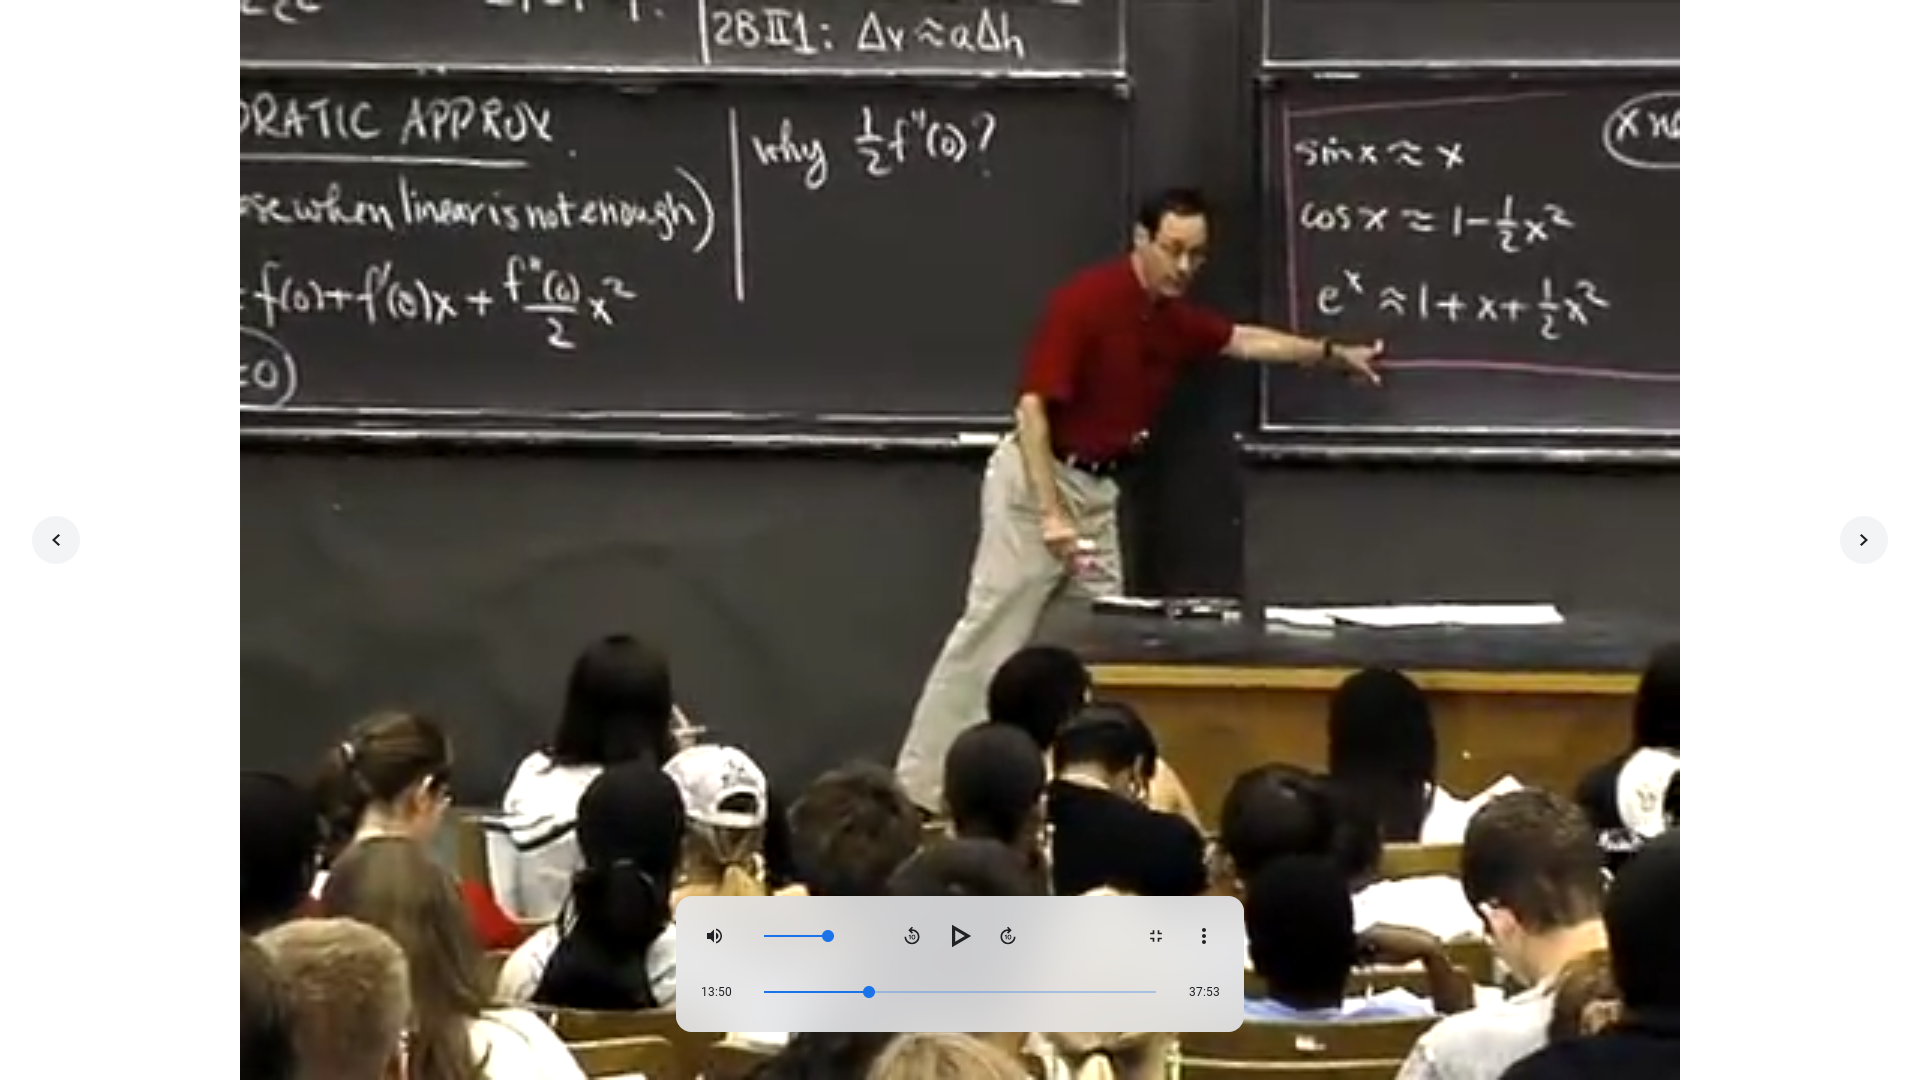 2BII1: Δv ≈ aΔh
DRATIC APPROX.
se when linear is not enough)
f(0) + f'(0)x + f''(0)/2 x²
=0
Why ½ f''(0)?
sin x ≈ x
cos x ≈ 1 - ½x²
e^x ≈ 1 + x + ½x²
x ne
10
10
13:50
37:53